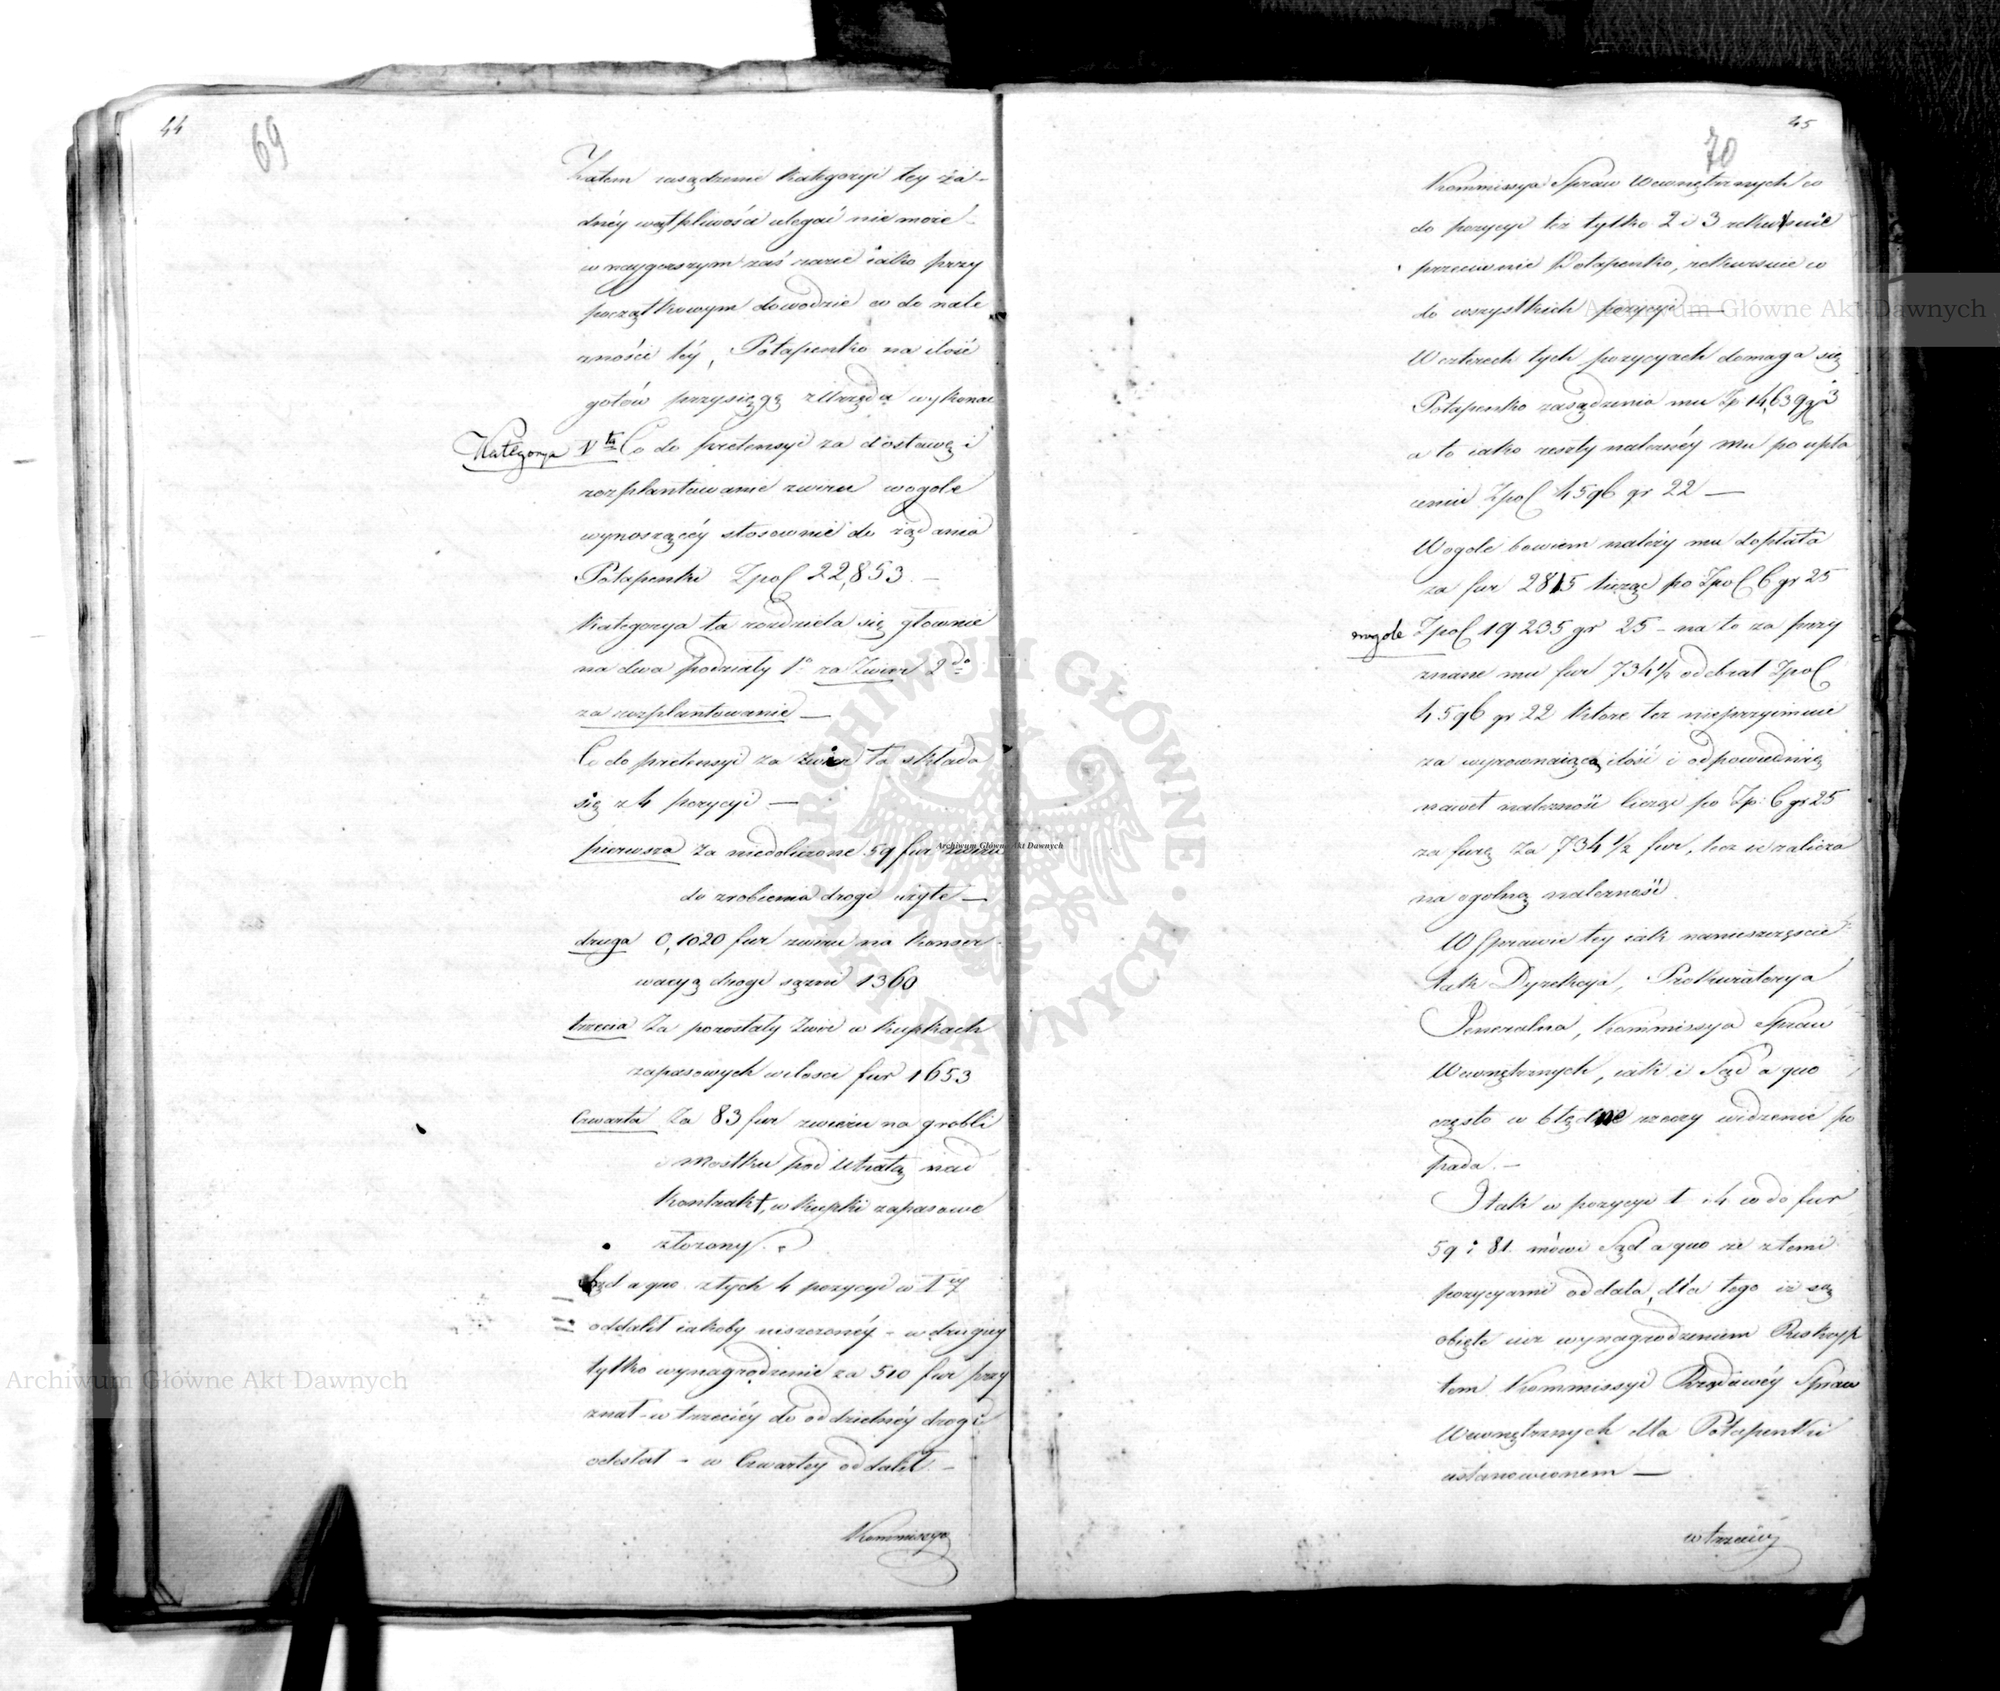 44
69
Zatem zasądzenie kategoryi tey ża-
dnéy wątpliwości ulegać nie może -
w naygorszym zaś razie iako przy
początkowym dowodzie co do nale
żności téy, Potapenko na ilość
gotów przysięgę z Urzędu wykonać
Kategorya Vta Co do pretensyi za dostawę i
rozplantowanie żwiru wogole
wynoszącéy stosownie do żądania
Potapenki Zpol 22,853. -
Kategorya ta rozdziela się głownie
na dwa podziały 1o za Żwir 2do
za rozplantowanie —
Co do pretensyi za żwir ta składa
się z 4 pozycyi —
pierwsza za niedoliczone 59 fur żwiru
do zrobienia drogi użyte —
druga O, 1020 fur żwiru na konser
wacyą drogi sążni 1360
trzecia Za pozostały Żwir w kupkach
zapasowych wilosci fur 1653
Czwarta Za 83 fur żwiru na grobli
i Mostku pod Utratą nad
kontrakt, w kupki zapasowe
złożony.
Sąd a quo z tych 4 pozycyi w 1ey
oddalił iakoby uiszczonéy - w drugiey
tylko wynagrodzenie za 510 fur przy
znał - w trzeciéy do oddzielnéy drogi
odesłał - w Czwartey oddalił. -
Kommissya
45
70
Kommissya Spraw Wewnętrznych co
do pozycyi też tylko 2 i 3 rekursuie
przeciwnie Potapenko, rekursuie co
do wszystkich pozycyi —
W czterech tych pozycyach domaga się
Potapenko zasądzenia mu Zp 14,639 gr 3
a to iako reszty należnéy mu po upła
ceniu Zpol 4596 gr 22 —
Wogole bowiem należy mu dopłata
za fur 2815 licząc po Zpol 6 gr 25
wogole Zpol 19235 gr 25 - na to za przy
znane mu fur 734 1/2 odebrał Zpol
4596 gr 22 które też nieprzyimuie
za wyrownaiącą ilość i odpowiednią
nawet należność licząc po Zp: 6 gr 25
za furę za 734 1/2 fur, lecz ie zalicza
na ogolną należność.
W Sprawie tey iak nanieszczęście
tak Dyrekcja, Prokuratorya
Jeneralna, Kommissya Spraw
Wewnętrznych, iak i Sąd a quo
często w błędne rzeczy widzenie po
pada. -
I tak w pozycyi 1 i 4 co do fur
59 i 81. mówi Sąd a quo że z temi
pozycyami oddala, dla tego iż są
obięte iuż wynagrodzeniem Reskryp
tem Kommissyi Rządowéy Spraw
Wewnętrznych dla Potapenki
ustanowionem —
w trzeciéy
Archiwum Główne Akt Dawnych
Archiwum Główne Akt Dawnych
Archiwum Główne Akt Dawnych
ARCHIWUM GŁÓWNE AKT DAWNYCH